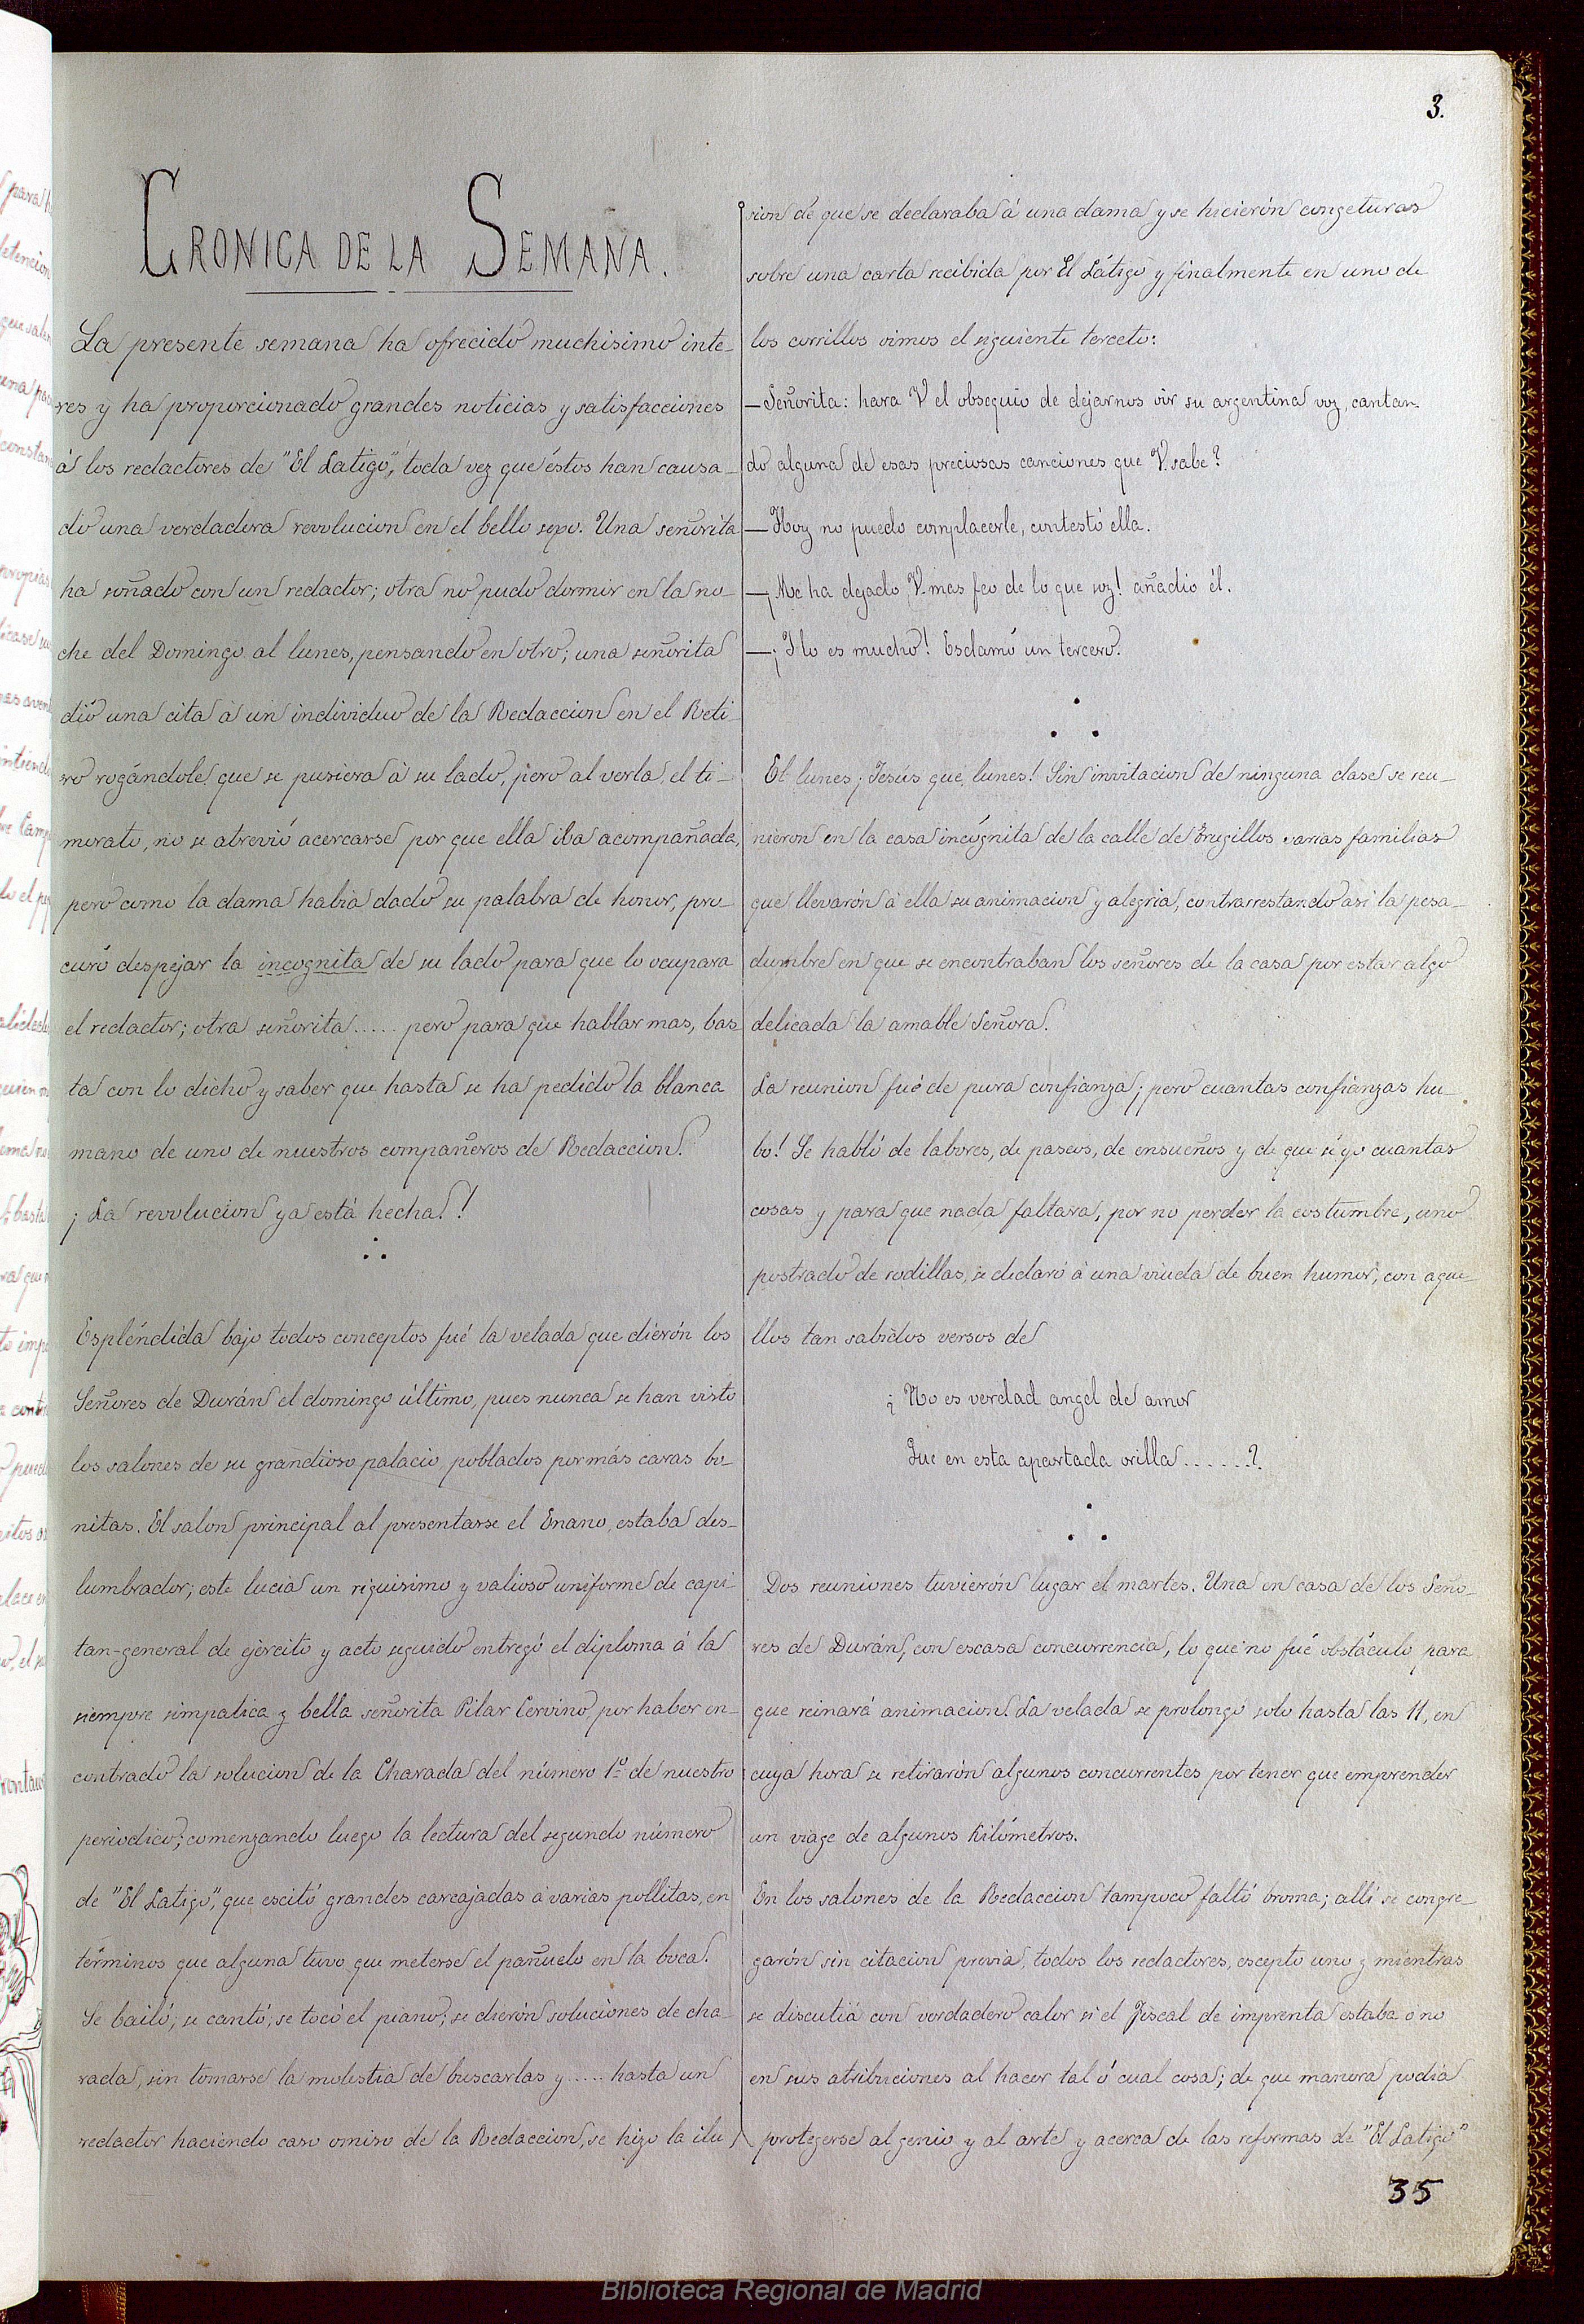 3.
CRONICA DE LA SEMANA.
La presente semana ha ofrecido muchisimo inte-
res y ha proporcionado grandes noticias y satisfacciones
á los redactores de "El Latigo", toda vez que éstos han causa-
do una verdadera revolucion en el bello sexo. Una señorita
ha soñado con un redactor; otra no pudo dormir en la no-
che del Domingo al lunes, pensando en otro; una señorita
dió una cita á un individuo de la Redaccion en el Reti-
ro rogándole que se pusiera á su lado, pero al verla, el ti-
morato, no se atrevió acercarse por que ella iba acompañada,
pero como la dama habia dado su palabra de honor, pro-
curó despejar la incognita de su lado para que lo ocupara
el redactor; otra señorita..... pero para que hablar mas, bas
ta con lo dicho y saber que hasta se ha pedido la blanca
mano de uno de nuestros compañeros de Redaccion.
¡La revolucion ya está hecha!!
Espléndida bajo todos conceptos fué la velada que dierón los
Señores de Durán el domingo último, pues nunca se han visto
los salones de su grandioso palacio poblados por más caras bo-
nitas. El salon principal al presentarse el Enano, estaba des-
lumbrador; este lucia un riquisimo y valioso uniforme de capi-
tan-general de ejército y acto seguido entregó el diploma á la
siempre simpatica y bella señorita Pilar Cervino, por haber en-
contrado la solucion de la Charada del número 1º de nuestro
periodico; comenzando luego la lectura del segundo número
de "El Latigo", que escitó grandes carcajadas á varias pollitas, en
términos que alguna tuvo que meterse el pañuelo en la boca.
Se bailó; se cantó; se tocó el piano; se dierón soluciones de cha-
rada, sin tomarse la molestia de buscarlas y ..... hasta un
redactor haciendo caso omiso de la Redaccion, se hizo la ilu-
sion de que se declaraba á una dama y se hicierón congeturas
sobre una carta recibida por El Látigo y finalmente en uno de
los corrillos oimos el siguiente terceto:
—Señorita: hara V. el obsequio de dejarnos oir su argentina voz, cantan-
do alguna de esas preciosas canciones que V. sabe?
—Hoy no puedo complacerle, contestó ella.
—¡Me ha dejado V. mas feo de lo que soy! añadio él.
—¡Y lo es mucho! Esclamó un tercero.
El lunes ¡Jesús que lunes! Sin invitacion de ninguna clase se reu-
nieron en la casa incógnita de la calle de Trugillos varias familias
que llevarón á ella su animacion y alegria, contrarrestando asi la pesa-
dumbre en que se encontraban los señores de la casa por estar algo
delicada la amable Señora.
La reunion fué de pura confianza; ¡pero cuantas confianzas hu-
bo! Se habló de labores, de paseos, de ensueños y de que sé yo cuantas
cosas y para que nada faltara, por no perder la costumbre, uno
postrado de rodillas, se declaró á una viuda de buen humor, con aque-
llos tan sabidos versos de
¿No es verdad angel de amor
Que en esta apartada orilla.......?
Dos reuniones tuvierón lugar el martes. Una en casa de los Seño-
res de Durán, con escasa concurrencia, lo que no fué obstáculo para
que reinará animacion. La velada se prolongó solo hasta las 11, en
cuya hora se retirarón algunos concurrentes por tener que emprender
un viage de algunos Kilómetros.
En los salones de la Redaccion tampoco faltó broma; alli se congre-
garón sin citacion previa, todos los redactores, escepto uno y mientras
se discutia con verdadero calor si el Fiscal de imprenta estaba o no
en sus atribuciones al hacer tal ó cual cosa; de que manera podia
protegerse al genio y al arte y acerca de las reformas de "El Latigo"
35
Biblioteca Regional de Madrid